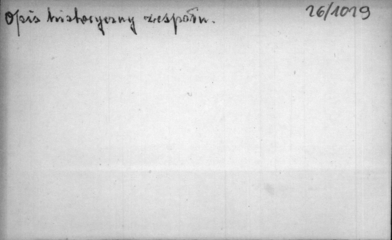 Opis historyczny zespołu.
26/1029